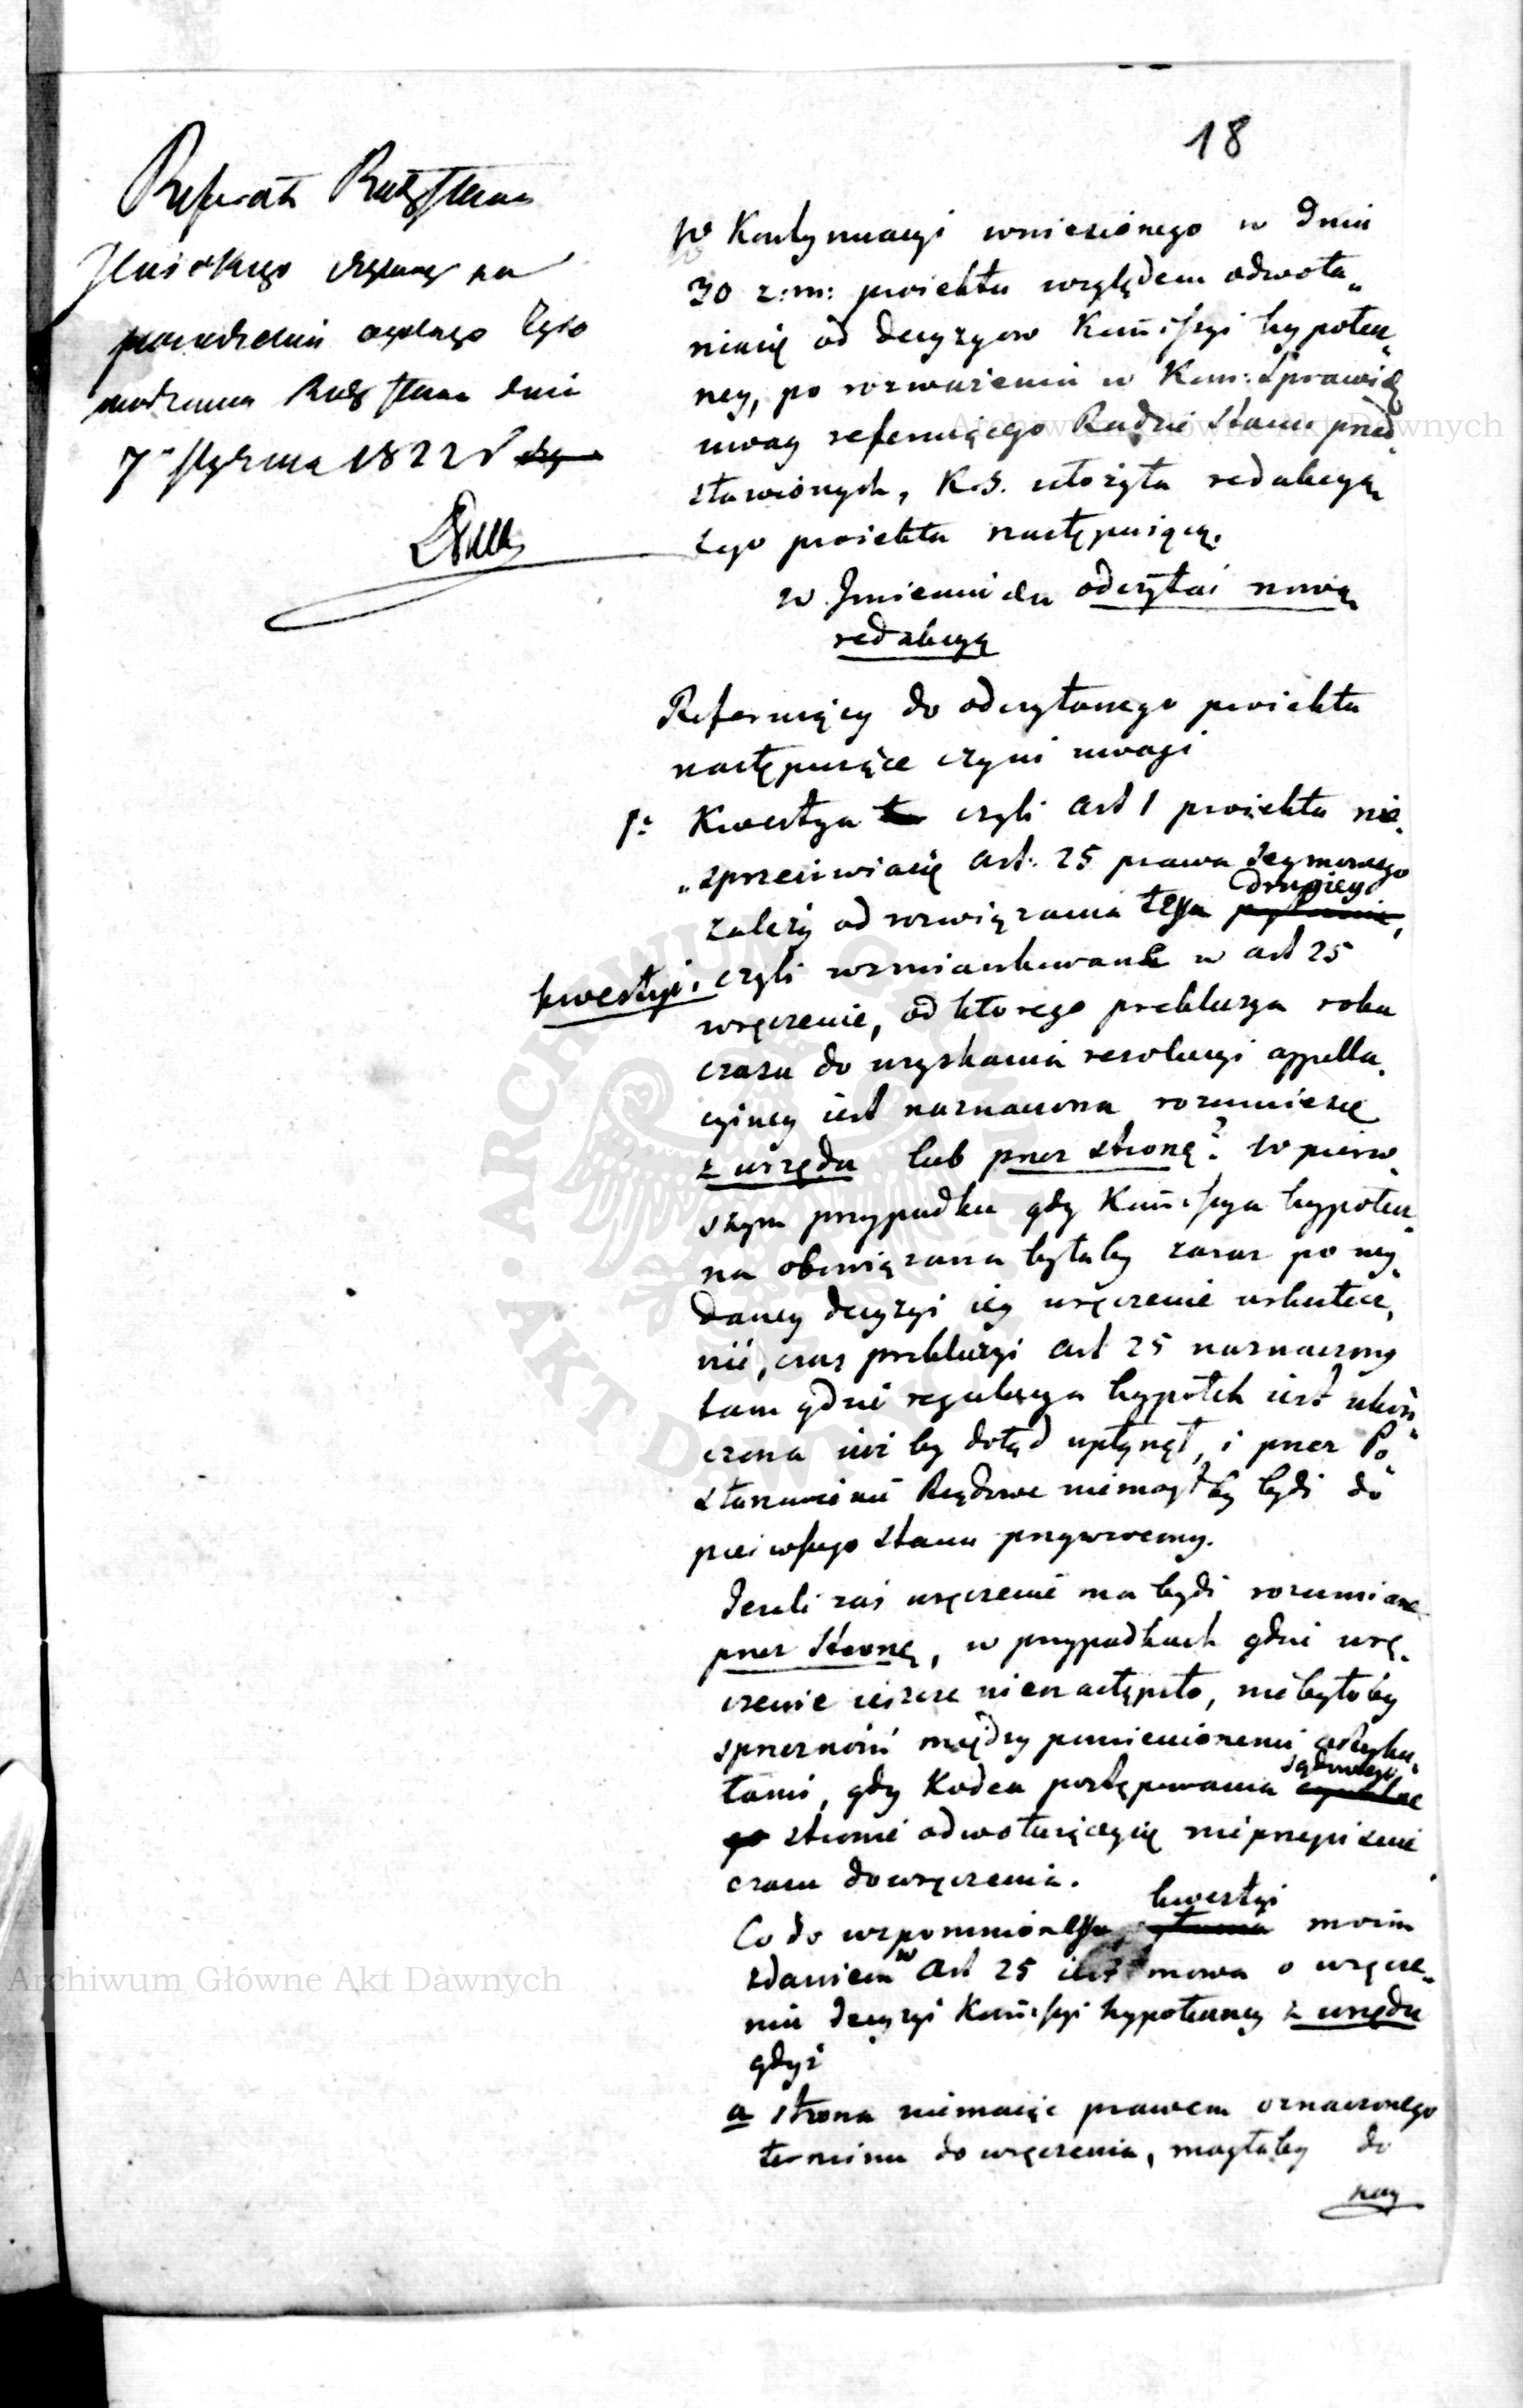 18
Referat Radzstanu
czytany na
posiedzeniu ogólnego Zgro
madzenia Rady Stanu dnia
7º stycznia 1822 r
W Kontynuacyi wniesionego w dniu
30 z:m: proiektu względem odwoła„
niasię od decyzyow Kom̄issyi hypotecz„
ney, po rozważeniu w Kom: Sprawiedl
uwag referuiącego Radzie Stanu przed„
stawionych, K.S. ułożyła redakcyą
tego proiektu następuiącą.
w Jmieniu etc odczytać nową
redakcyą
Referuiący do odczytanego proiektu
następuiące czyni uwagi
1º Kwestya czyli art 1 proiektu nie„
„sprzeciwiasię art: 25 prawa Seymowego
zależy od rozwiązania tey drugiey
kwestyi, czyli wzmiankowane w art 25
wręczenie, od ktorego prekluzya roku
czasu do uzyskania rezolucyi appella„
cyiney iest naznaczona rozumiesię
z urzędu lub przez stronę? W pierw„
szym przypadku gdy Kom̄issya hypotecz„
na obowiązana byłaby zaraz po wy„
daney decyzyi iey wręczenie uskutecz„
nić, czas prekluzyi art 25 naznaczony
tam gdzie regulacya hypotek iest ukoń„
czona iuż by dotąd upłynął, i przez Po„
stanowienie Rządowe niemogłby bydź do
pierwszego stanu przywrocony.
Jeżeli zaś wręczenie ma bydź rozumiane
przez stronę, w przypadkach gdzie wrę„
czenie ieszcze nienastąpiło, niebyłoby
sprzeczność między pomienionemi artyku„
łami, gdy Kodex postępowania sądowego
stronie odwołuiąceysię nieprzepisuie
czasu dowręczenia.
Co do wspomnioney kwestyi moim
zdaniem w Art 25 iest mowa o wręcze„
niu decyzyi Kom̄issyi hypoteczney z urzędu
gdyż
a strona niemaiąc prawem oznaczonego
terminu do wręczenia, mogłaby do
nay
Archiwum Główne Akt Dawnych
Archiwum Główne Akt Dawnych
ARCHIWUM GŁÓWNE AKT DAWNYCH